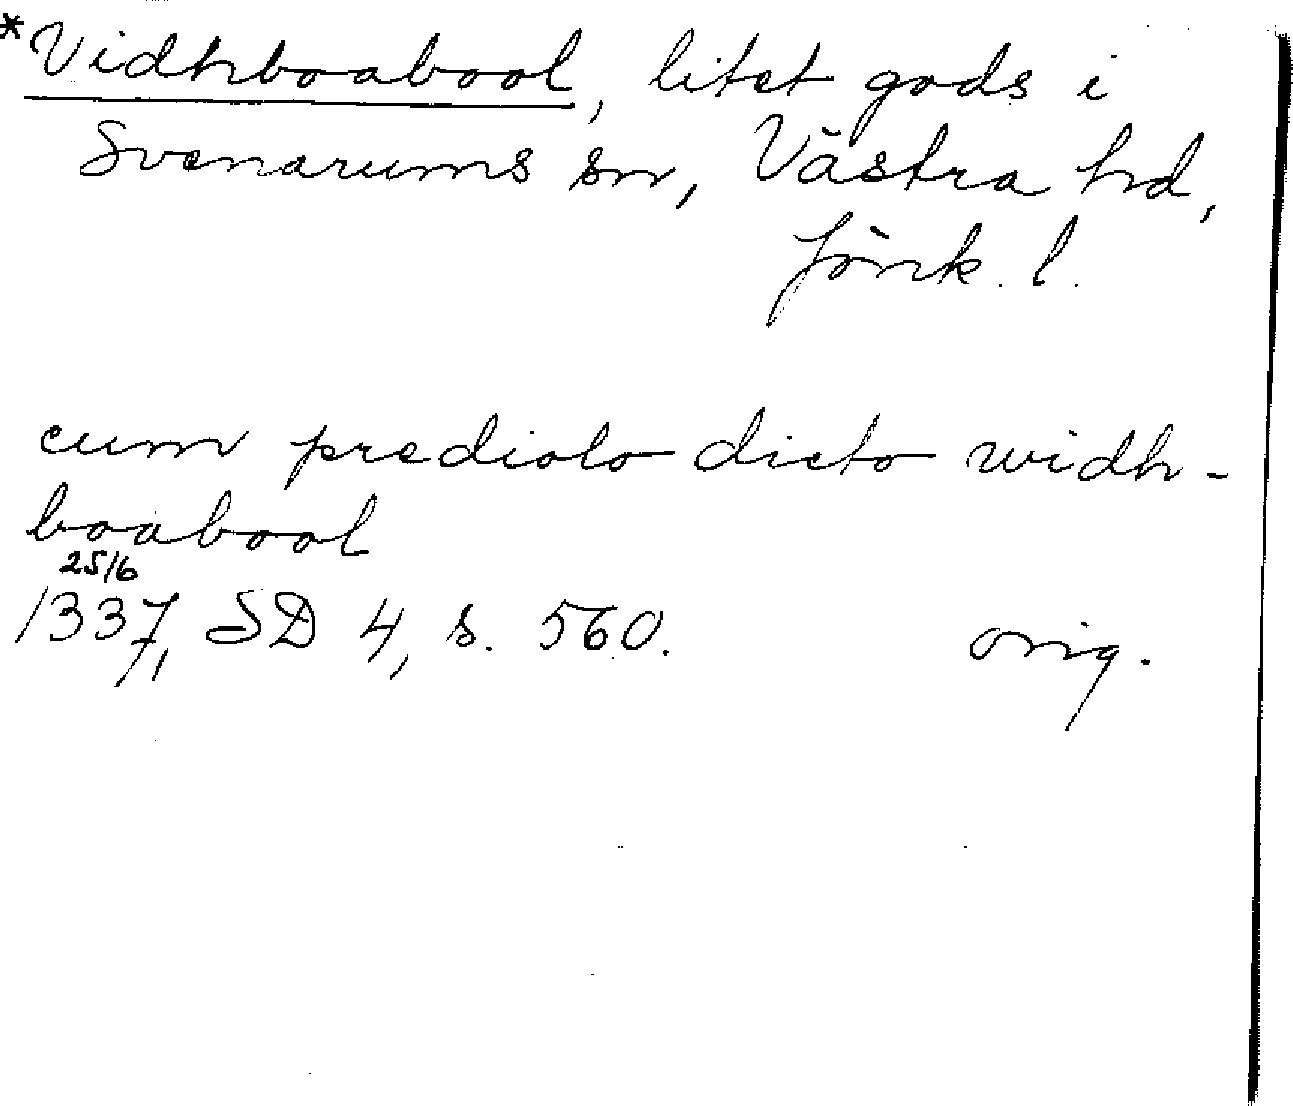 *Vidhboabool, litet gods i
Svenarums sn, Västra hd,
Jönk. l.
cum prediolo dicto widh-
boabool
25/6
1337, SD 4, s. 560. orig.